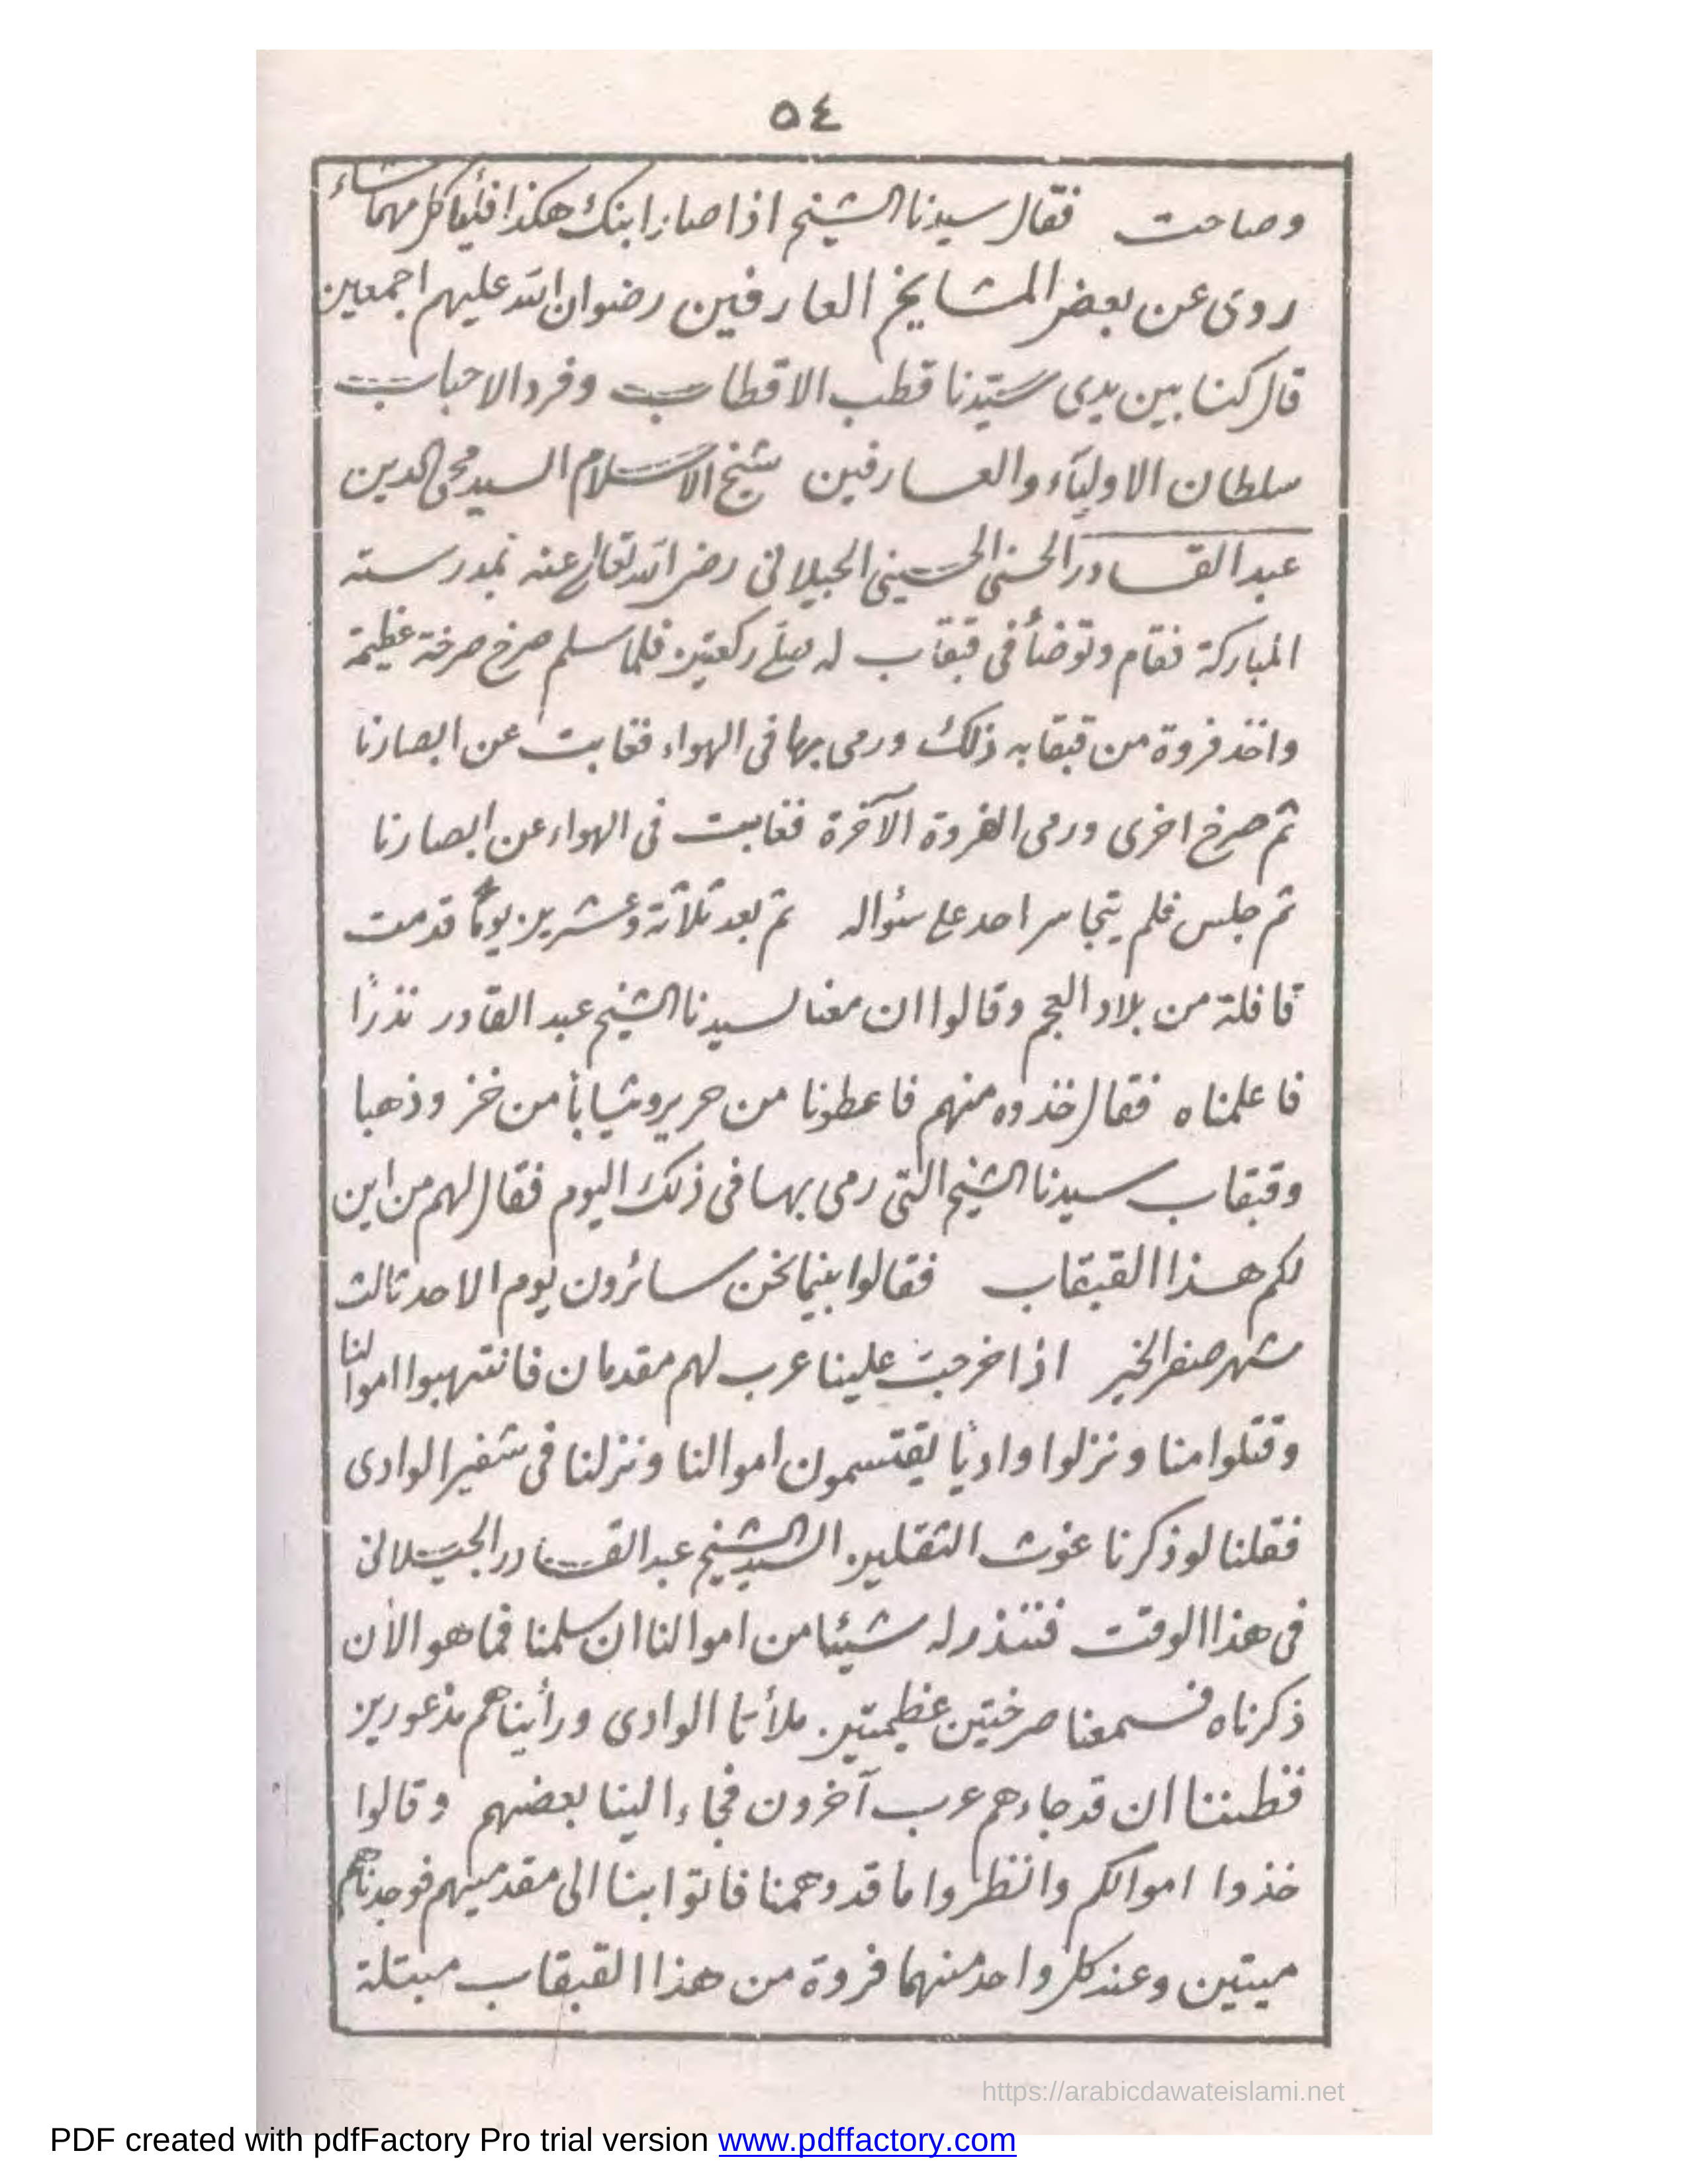 ٥٤
وصاحت فقال سيدنا الشيخ اذا صار ابنك هكذا فليأكل مهما شاء
روى عن بعض المشايخ العارفين رضوان الله عليهم اجمعين
قال كنا بين يدى سيّدنا قطب الاقطاب وفرد الاحباب
سلطان الاولياء والعارفين شيخ الاسلام السيد محى الدين
عبد القادر الحسنى الحسينى الجيلانى رضى الله تعالى عنه بمدرسته
المباركة فقام وتوضأ فى قبقاب له صلى ركعتين فلما سلم صرخ صرخة عظيمة
واخذ فروة من قبقابه ذلك ورمى بها فى الهواء فغابت عن ابصارنا
ثم صرخ اخرى ورمى الفروة الآخرة فغابت فى الهواء عن ابصارنا
ثم جلس فلم يتجاسر احد على سئواله ثم بعد ثلاثة وعشرين يوماً قدمت
قافلة من بلاد العجم وقالوا ان معنا لسيدنا الشيخ عبد القادر نذرًا
فاعلمناه فقال خذوه منهم فاعطونا من حرير وثياباً من خز وذهبا
وقبقاب سيدنا الشيخ التى رمى بها فى ذلك اليوم فقال لهم من اين
لكم هذا القبقاب فقالوا بينما نحن سائرون يوم الاحد ثالث
شهر صفر الخير اذا خرجت علينا عرب لهم مقدمان فانتهبوا اموالنا
وقتلوا منا ونزلوا واديًا يقتسمون اموالنا ونزلنا فى شفير الوادى
فقلنا لو ذكرنا غوث الثقلين السيد الشيخ عبد القادر الجيلانى
فى هذا الوقت فننذر له شيئا من اموالنا ان سلمنا فما هو الأن
ذكرناه فسمعنا صرختين عظيمتين ملأتا الوادى ورأيناهم مذعورين
فظننا ان قد جاءهم عرب آخرون فجاء الينا بعضهم وقالوا
خذوا اموالكم وانظروا ما قد دهمنا فاتوا بنا الى مقدميهم فوجدناهم
ميتين وعند كل واحد منهما فروة من هذا القبقاب مبتلة
https://arabicdawateislami.net
PDF created with pdfFactory Pro trial version www.pdffactory.com